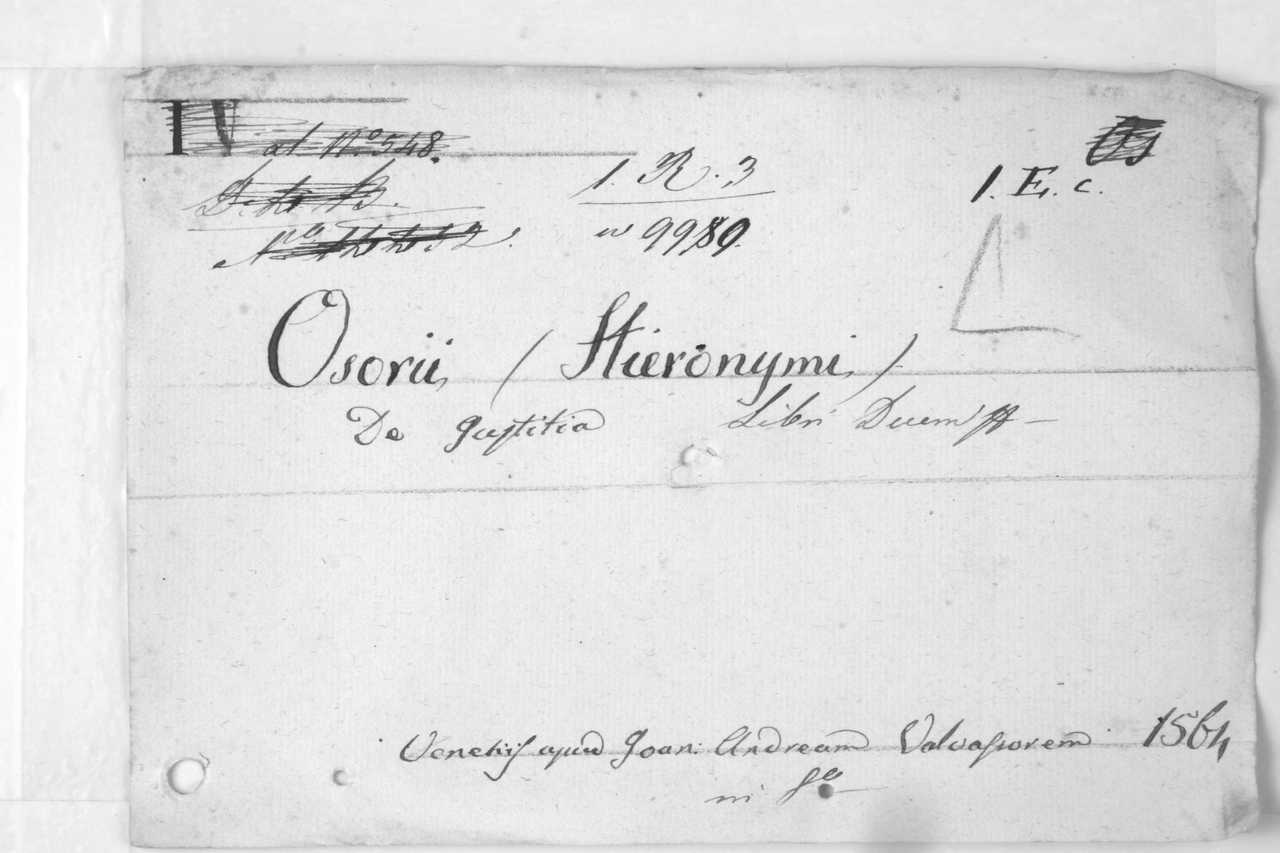 IV al N.o 548.
1. R. 3
1. E. c.
w 9989
Osorii (Hieronymi)
De Justitia Libri Decem
Venetiis apud Joan: Andream Valvassorem 1564
in